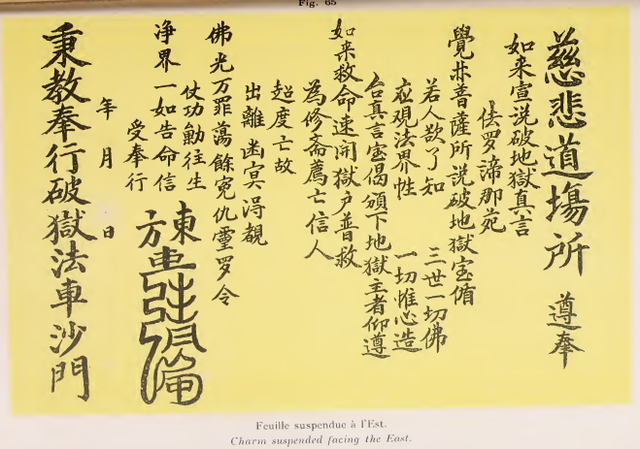 Fig. 65
慈悲道塲所 遵奉
如来宣说破地獄真言
佉罗諦那苑
覺林普薩所説破地獄宝偈
若人欲了知 三世一切佛
应观法界性 一切惟心造
台真言宝偈頒下地獄主者仰遵
如来敕命速開獄户普救
為修斋薦亡信人
超度亡故
出離幽冥淂覩
佛光万罪蕩餘冤仇靈罗令
仗功勳往生
净界一如告命信
受奉行
東方
年 月 日
秉教奉行破獄法車沙門
Feuille suspendue à l'Est.
Charm suspended facing the East.